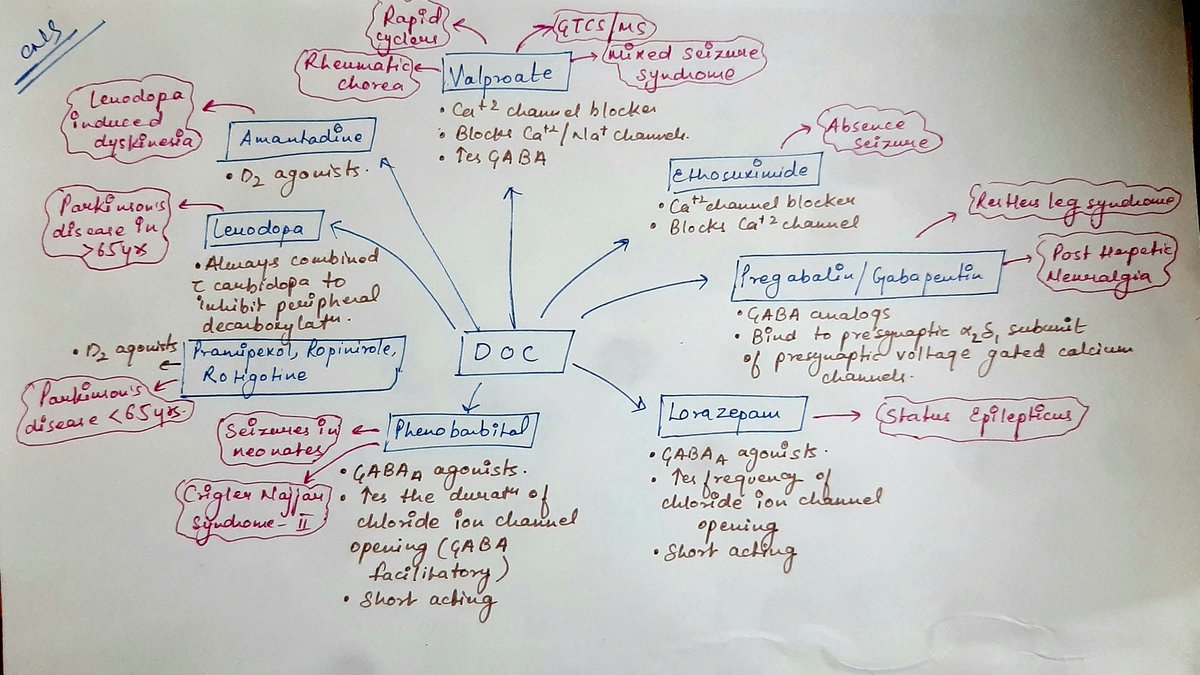 CNS
Rapid
cyclers
GTCS/MS
Rheumatic
chorea
Valproate
Mixed seizure
syndrome
• Ca+2 channel blocker
• Blocks Ca+2/Na+ channels.
• ↑es GABA
Levodopa
induced
dyskinesia
Amantadine
• D2 agonists.
Absence
seizure
Ethosuximide
• Ca+2 channel blocker
• Blocks Ca+2 channel
Parkinson's
disease in
>65yrs
Levodopa
• Always combined
c̄ carbidopa to
inhibit peripheral
decarboxylatn.
Restless leg syndrome
Post Herpetic
Neuralgia
Pregabalin/Gabapentin
• GABA analogs
• Bind to presynaptic α2δ1 subunit
of presynaptic voltage gated calcium
channels.
DOC
• D2 agonists
Pramipexol, Ropinirole,
Rotigotine
Parkinson's
disease <65yrs.
Seizures in
neonates
Phenobarbital
Crigler Najjar
Syndrome-II
• GABAA agonists.
• ↑es the duratn of
chloride ion channel
opening (GABA
facilitatory)
• Short acting
Lorazepam
Status Epilepticus
• GABAA agonists.
• ↑es frequency of
chloride ion channel
opening
• Short acting